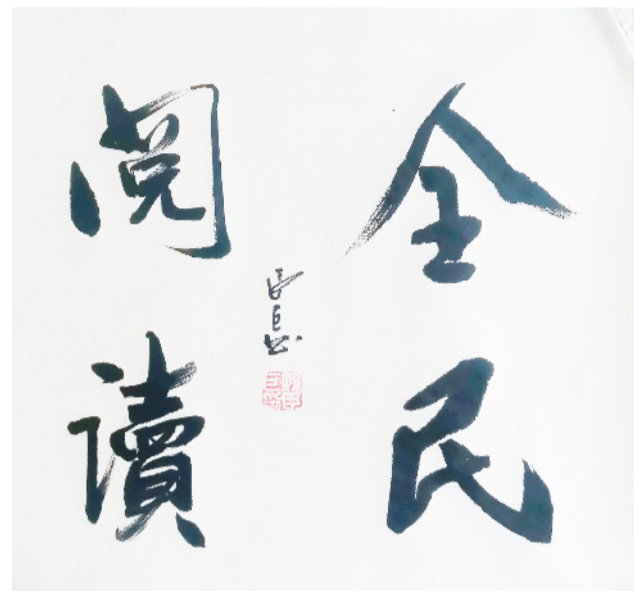 全民
阅讀